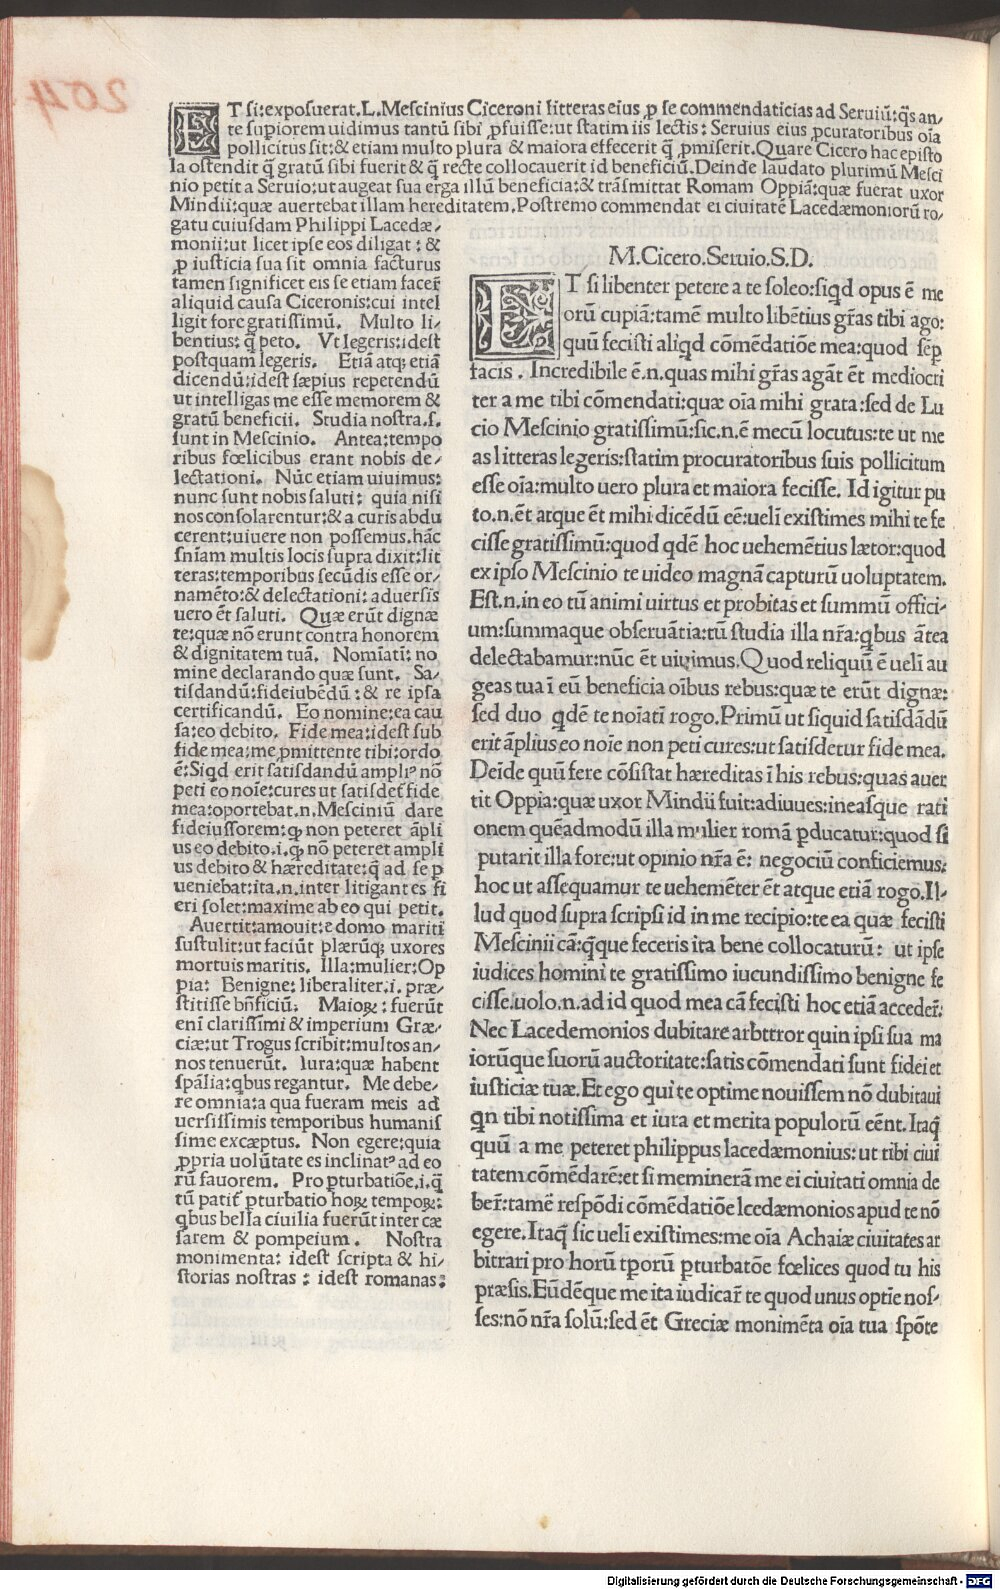 ET si:exposuerat.L.Mescinius Ciceroni litteras eius ꝑ se commendaticias ad Seruiū:q̄s an-
te supiorem uidimus tantū sibi ꝓfuisse:ut statim iis lectis: Seruius eius ꝓcuratoribus oīa
pollicitus sit:& etiam multo plura & maiora effecerit q̄ ꝓmiserit.Quare Cicero hac episto
la ostendit q̄ gratū sibi fuerit & q̄ recte collocauerit id beneficiū.Deinde laudato plurimū Mesci
nio petit a Seruio:ut augeat sua erga illū beneficia:& trāsmittat Romam Oppiā:quæ fuerat uxor
Mindii:quæ auertebat illam hereditatem.Postremo commendat ei ciuitatē Lacedæmoniorū ro-
gatu cuiusdam Philippi Lacedæ-
monii:ut licet ipse eos diligat: &
ꝑ iusticia sua sit omnia facturus
tamen significet eis se etiam facer̄
aliquid causa Ciceronis:cui intel
ligit fore gratissimū. Multo li-
bentius: q̄ peto. Vt legeris:idest
postquam legeris. Etiā atq; etiā
dicendū:idest sæpius reperendū
ut intelligas me esse memorem &
gratū beneficii. Studia nostra.s.
sunt in Mescinio. Antea:tempo
ribus fœlicibus erant nobis de-
lectationi. Nūc etiam uiuimus:
nunc sunt nobis saluti: quia nisi
nos consolarentur:& a curis abdu
cerent:uiuere non possemus.hāc
sn̄iam multis locis supra dixit:lit
teras:temporibus secūdis esse or-
namēto:& delectationi: aduersis
uero ēt saluti. Quæ erūt dignæ
te:quæ nō erunt contra honorem
& dignitatem tuā. Nomīatī: no
mine declarando quæ sunt. Sa-
tisdandū:fideiubēdū: & re ipsa
certificandū. Eo nomine:ea cau
sa:eo debito. Fide mea:idest sub
fide mea:me ꝓmittente tibi:ordo
ē:Siqd erit satisdandū ampliꝰ nō
peti eo noīe:cures ut satisdet̄ fide
mea:oportebat.n.Mesciniū dare
fideiussorem:ꝙ non peteret āpli
us eo debito.i.ꝙ nō peteret ampli
us debito & hæreditate:q̄ ad se ꝑ
ueniebat:ita.n.inter litigantes fi
eri solet:maxime ab eo qui petit.
Auertit:amouit:e domo mariti
sustulit:ut faciūt plærūq; uxores
mortuis maritis. Illa:mulier:Op
pia: Benigne: liberaliter.i. præ-
stitisse bn̄ficiū: Maioꝝ: fuerūt
eni clarissimi & imperium Græ-
ciæ:ut Trogus scribit:multos an-
nos tenuerūt. Iura:quæ habent
spālia:qbus regantur. Me debe-
re omnia:a qua fueram meis ad
uersissimis temporibus humanis
sime excæptus. Non egere:quia
ꝓpria uolūtate es inclinatꝰ ad eo
rū fauorem. Pro ꝑturbatiōe.i.q̄
tū patit̄ ꝑturbatio hoꝝ tempoꝝ:
qbus bella ciuilia fuerūt inter cæ
sarem & pompeium. Nostra
monimenta: idest scripta & hi-
storias nostras: idest romanas:
M.Cicero.Seruio.S.D.
ET si libenter petere a te soleo:siqd opus ē me
orū cupiā:tamē multo libētius gr̄as tibi ago:
quū fecisti aliqd cōmēdatiōe mea:quod sēꝑ
facis. Incredibile ē.n.quas mihi gr̄as agāt ēt mediocri
ter a me tibi cōmendati:quæ oīa mihi grata:sed de Lu
cio Mescinio gratissimū:sic.n.ē mecū locutus:te ut me
as litteras legeris:statim procuratoribus suis pollicitum
esse oīa:multo uero plura et maiora fecisse. Id igitur pu
to.n.ēt atque ēt mihi dicēdū eē:ueli existimes mihi te fe
cisse gratissimū:quod qdē hoc uehemētius lætor:quod
ex ipso Mescinio te uideo magnā capturū uoluptatem.
Est.n.in eo tū animi uirtus et probitas et summū offici-
um:summaque obseruātia:tū studia illa nr̄a:qbus ātea
delectabamur:nūc ēt uiuimus.Quod reliquū ē ueli au
geas tua ī eū beneficia oībus rebus:quæ te erūt dignæ:
sed duo qdē te noīatī rogo.Primū ut siquid satisdādū
erit āplius eo noīe non peti cures:ut satisdetur fide mea.
Deīde quū fere cōsistat hæreditas ī his rebus:quas auer
tit Oppia:quæ uxor Mindii fuit:adiuues:ineasque rati
onem quēadmodū illa mulier romā ꝑducatur:quod si
putarit illa fore:ut opinio nr̄a ē: negociū conficiemus:
hoc ut assequamur te uehemēter ēt atque etiā rogo.Il-
lud quod supra scripsi id in me recipio:te ea quæ fecisti
Mescinii cā:q̄que feceris ita bene collocaturū: ut ipse
iudices homini te gratissimo iucundissimo benigne fe
cisse.uolo.n.ad id quod mea cā fecisti hoc etiā acceder̄:
Nec Lacedemonios dubitare arbttror quin ipsi sua ma
iorūque suorū auctoritate:satis cōmendati sunt fidei et
iusticiæ tuæ.Et ego qui te optime nouissem nō dubitaui
qn tibi notissima et iura et merita populorū eēnt.Itaq̄
quū a me peteret philippus lacedæmonius: ut tibi ciui
tatem cōmēdarē:et si meminerā me ei ciuitati omnia de
ber̄:tamē respōdi cōmēdatiōe lcedæmonios apud te nō
egere.Itaq̄ sic ueli existimes:me oīa Achaiæ ciuitates ar
bitrari pro horū tꝑorū ꝑturbatōe fœlices quod tu his
præsis.Eūdēque me ita iudicar̄ te quod unus optīe nos-
ses:nō nr̄a solū:sed ēt Greciæ monimēta oīa tua spōte
Digitalisierung gefördert durch die Deutsche Forschungsgemeinschaft - DFG